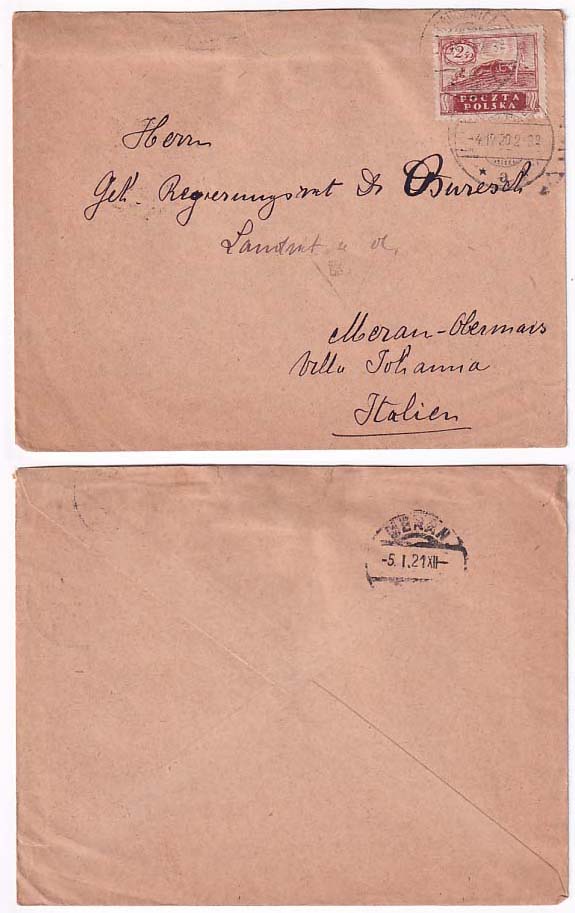 2
POCZTA
POLSKA
-4.12.20.2-
* a
Herrn
Geh. Regierungsrat Dr Buresch
Landrat a. d.
Meran-Obermais
Villa Johanna
Italien
MERAN
-5.I.21XII-